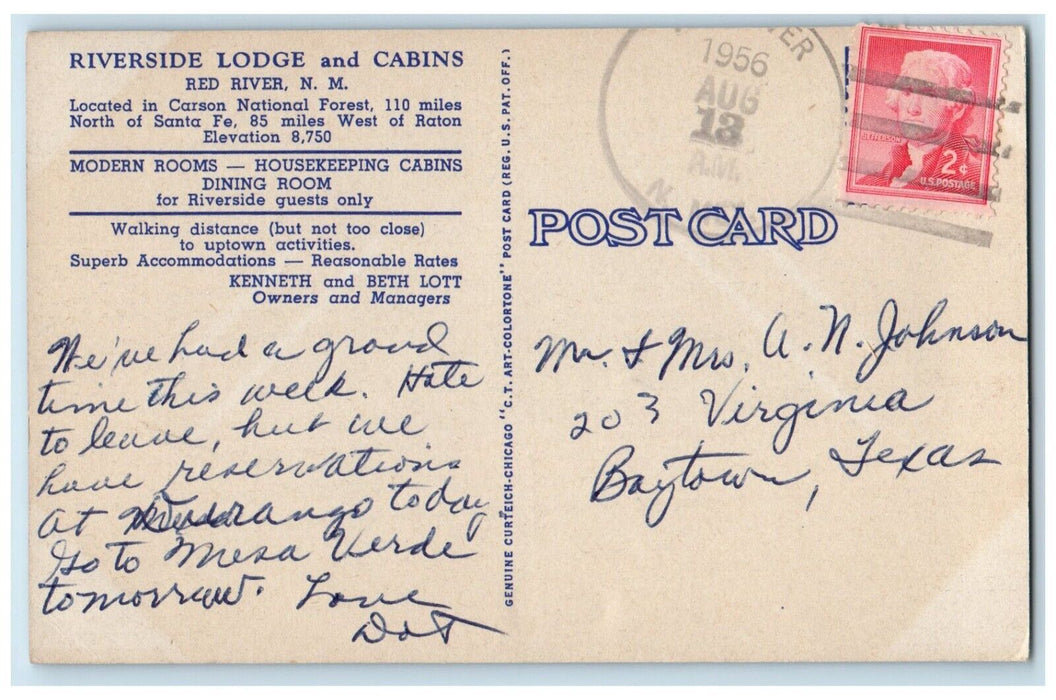 RIVERSIDE LODGE and CABINS
RED RIVER, N. M.
Located in Carson National Forest, 110 miles
North of Santa Fe, 85 miles West of Raton
Elevation 8,750
MODERN ROOMS — HOUSEKEEPING CABINS
DINING ROOM
for Riverside guests only
Walking distance (but not too close)
to uptown activities.
Superb Accommodations — Reasonable Rates
KENNETH and BETH LOTT
Owners and Managers
We've had a grand
time this week. Hate
to leave, but we
have reservations
at Durango today
Go to Mesa Verde
tomorrow. Love
Dot
GENUINE CURTEICH-CHICAGO "C.T. ART-COLORTONE" POST CARD (REG. U.S. PAT. OFF.)
1956
AUG
13
A.M.
JEFFERSON
2¢
U.S. POSTAGE
POST CARD
Mr. & Mrs. A. N. Johnson
203 Virginia
Baytown, Texas